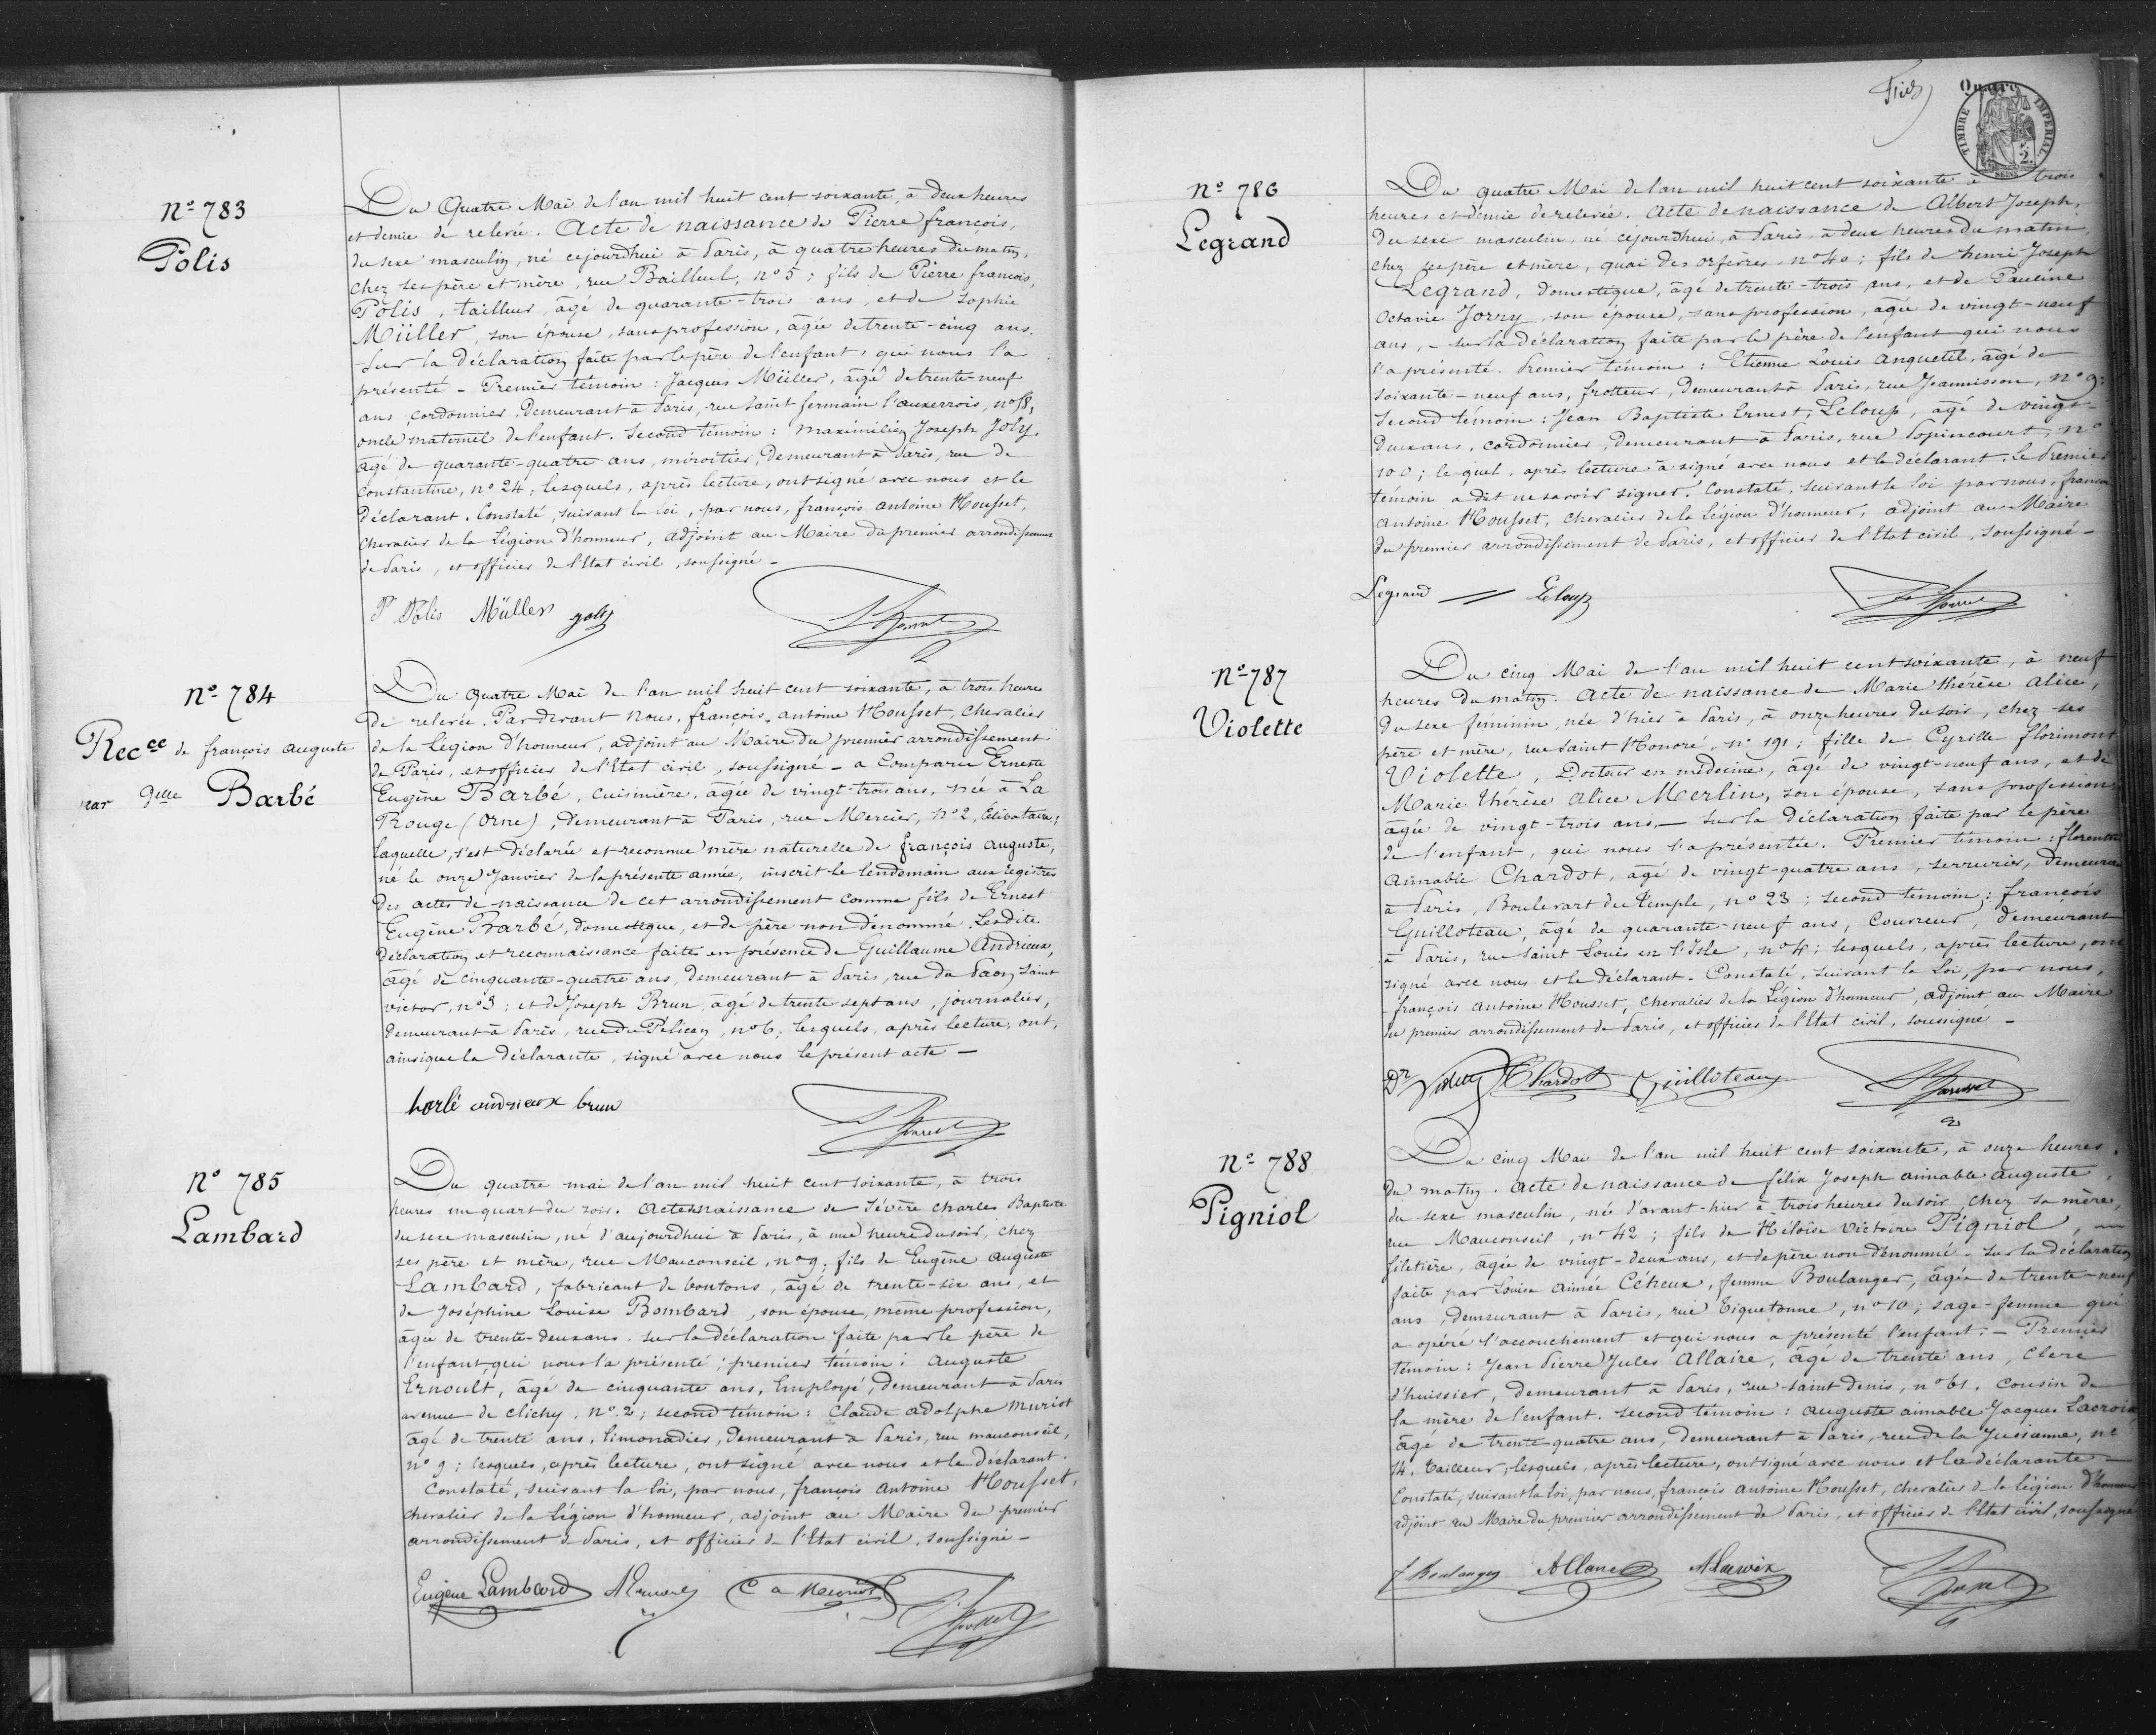 N° 783
Polis
Du Quatre Mai de l'an mil huit cent soixante, à deux heures
et demie de relevée. Acte de naissance de Pierre françois,
du sexe masculin, né cejourdhui à Paris, à quatre heures du matin,
chez ses père et mère, rue Bailleul, n° 5; fils de Pierre françois,
Polis, tailleur, âgé de quarante-trois ans, et de Sophie
Müller, son épouse, sans profession, âgée de trente-cinq ans.
Sur la déclaration faite par le père de l'enfant, qui nous l'a
présenté - Premier témoin : Jacques Müller, âgé de trente-neuf
ans, cordonnier, demeurant à Paris, rue Saint Germain l'auxerrois, n°
oncle maternel de l'enfant. Second témoin : Maximilien Joseph Joly,
âgé de quarante-quatre ans, miroitier, demeurant à Paris, rue de
Constantine, n° 24; lesquels, après lecture, ont signé avec nous et le
déclarant. Constaté, suivant la loi, par nous, françois antoine Housset,
chevalier de la Légion d'honneur, adjoint au Maire du premier arrondissement
de Paris, et officier de l'Etat civil, soussigné -
P Polis Müller Joly
N° 784
Recce de françois auguste
par Delle Barbé
Du quatre Mai de l'an mil huit cent soixante, à trois heures
de relevée. Par devant nous, françois, antoine Housset, chevalier
de la Légion d'honneur, adjoint au Maire du premier arrondissement
de Paris, et officier de l'Etat civil, soussigné - a Comparu Erneste
Eugène Barbé, cuisinière, âgée de vingt-trois ans, née à La
Rouge (Orne), demeurant à Paris, rue Mercier, n° 2, Célibataire;
laquelle, s'est déclarée et reconnue mère naturelle de françois auguste,
né le onze Janvier de la présente année, inscrit le lendemain aux registres
des actes de naissance de cet arrondissement comme fils de Ernest
Eugène Barbé, domestique, et de père non dénommé. Lesdites
déclaration et reconnaissance faites en présence de Guillaume Andrieux,
âgé de cinquante-quatre ans, demeurant à Paris, rue du Paon Saint
victor, n° 3; et de Joseph Brun, âgé de trente-sept ans, journalier,
demeurant à Paris, rue du Pélican, n° 6; lesquels, après lecture, ont,
ainsi que la déclarante, signé avec nous le présent acte -
barbé andrieux brun
N° 785
Lambard
Du quatre mai de l'an mil huit cent soixante, à trois
heures un quart du soir. Acte de naissance de Sévère Charles Baptiste
du sexe masculin, né d'aujourdhui à Paris, à une heure du soir, chez
ses père et mère, rue Mauconseil, n° 9; fils de Eugène Auguste
Lambard, fabricant de boutons, âgé de trente-six ans, et
de Joséphine Louise Bombard, son épouse, même profession,
âgée de trente-deux ans. Sur la déclaration faite par le père de
l'enfant, qui nous l'a présenté; premier témoin : Auguste
Ernoult, âgé de cinquante ans, Employé, demeurant à Paris
avenue de Clichy, n° 2; second témoin : Claude Adolphe Muriot
âgé de trente ans, limonadier, demeurant à Paris, rue mauconseil,
n° 9; lesquels, après lecture, ont signé avec nous et le déclarant.
Constaté, suivant la loi, par nous, françois Antoine Housset,
chevalier de la Légion d'honneur, adjoint au Maire du premier
arrondissement de Paris, et officier de l'Etat civil, soussigné -
Eugène Lambard
Quatre
TIMBRE IMPERIAL
2
SEINE
N° 786
Legrand
Du quatre Mai de l'an mil huit cent soixante à trois
heures et demie de relevée. Acte de naissance de Albert Joseph,
du sexe masculin, né cejourdhui, à Paris, à deux heures du matin,
chez ses père et mère, quai des orfèvres, n° 40; fils de henri Joseph
Legrand, domestique, âgé de trente-trois ans, et de Pauline
Octavie Jorry, son épouse, sans profession, âgée de vingt-neuf
ans, - sur la déclaration faite par le père de l'enfant qui nous
l'a présenté. Premier témoin : Etienne Louis Anquetil, âgé de
soixante-neuf ans, frotteur, demeurant à Paris, rue Jeannisson, n° 9;
second témoin : Jean Baptiste Ernest, Leloup, âgé de vingt-
deux ans, cordonnier, demeurant à Paris, rue Popincourt, n°
100; lequel, après lecture à signé avec nous et le déclarant. Le Premier
témoin a dit ne savoir signer. Constaté, suivant la loi par nous, françois
Antoine Housset, chevalier de la Légion d'honneur, adjoint au Maire
du premier arrondissement de Paris, et officier de l'Etat civil, soussigné -
Legrand Leloup
N° 787
Violette
Du cinq Mai de l'an mil huit cent soixante, à neuf
heures du matin. Acte de naissance de Marie thérèse alice,
du sexe féminin, née d'hier à Paris, à onze heures du soir, chez ses
père et mère, rue Saint Honoré, n° 191; fille de Cyrille florimont
Violette, Docteur en médecine, âgé de vingt-neuf ans, et de
Marie thérèse alice Merlin, son épouse, sans profession,
âgée de vingt-trois ans, - sur la déclaration faite par le père
de l'enfant, qui nous l'a présentée. Premier témoin : florentin
aimable Chardot, âgé de vingt-quatre ans, serrurier, demeurant
à Paris, Boulevart du Temple, n° 23; second témoin : françois
Guilloteau, âgé de quarante-neuf ans, Couvreur, demeurant
à Paris, rue Saint Louis en l'Isle, n° 4; lesquels, après lecture, ont
signé avec nous et le déclarant. Constaté, suivant la Loi, par nous,
françois Antoine Housset, chevalier de la Légion d'honneur, adjoint au Maire
du premier arrondissement de Paris, et officier de l'Etat civil, soussigné -
Dr Violette Chardot Guilloteau
N° 788
Pigniol
Du cinq Mai de l'an mil huit cent soixante, à onze heures
du matin. Acte de naissance de félix Joseph aimable auguste,
du sexe masculin, né d'avant-hier à trois heures du soir, chez sa mère,
rue Mauconseil, n° 42; fils de Héloïse Victoire Pigniol,
filetière, âgée de vingt-deux ans, et de père non dénommé - sur la déclaration
faite par Louise aimée Céheux, femme Boulanger, âgée de trente-neuf
ans, demeurant à Paris, rue Tiquetonne, n° 10; sage-femme qui
a opéré l'accouchement et qui nous a présenté l'enfant; - Premier
témoin : Jean Pierre Jules Allaire, âgé de trente ans, Clerc
d'huissier, demeurant à Paris, rue Saint Denis, n° 61, cousin de
la mère de l'enfant. Second témoin : auguste aimable Jacques Lacroix
âgé de trente-quatre ans, demeurant à Paris, rue de la Jussienne, n°
14, tailleur; lesquels, après lecture, ont signé avec nous et la déclarante -
Constaté, suivant la loi, par nous, françois Antoine Housset, chevalier de la légion d'honneur
adjoint au Maire du premier arrondissement de Paris, et officier de l'Etat civil, soussigné
f Boulanger Allaire Alacroix